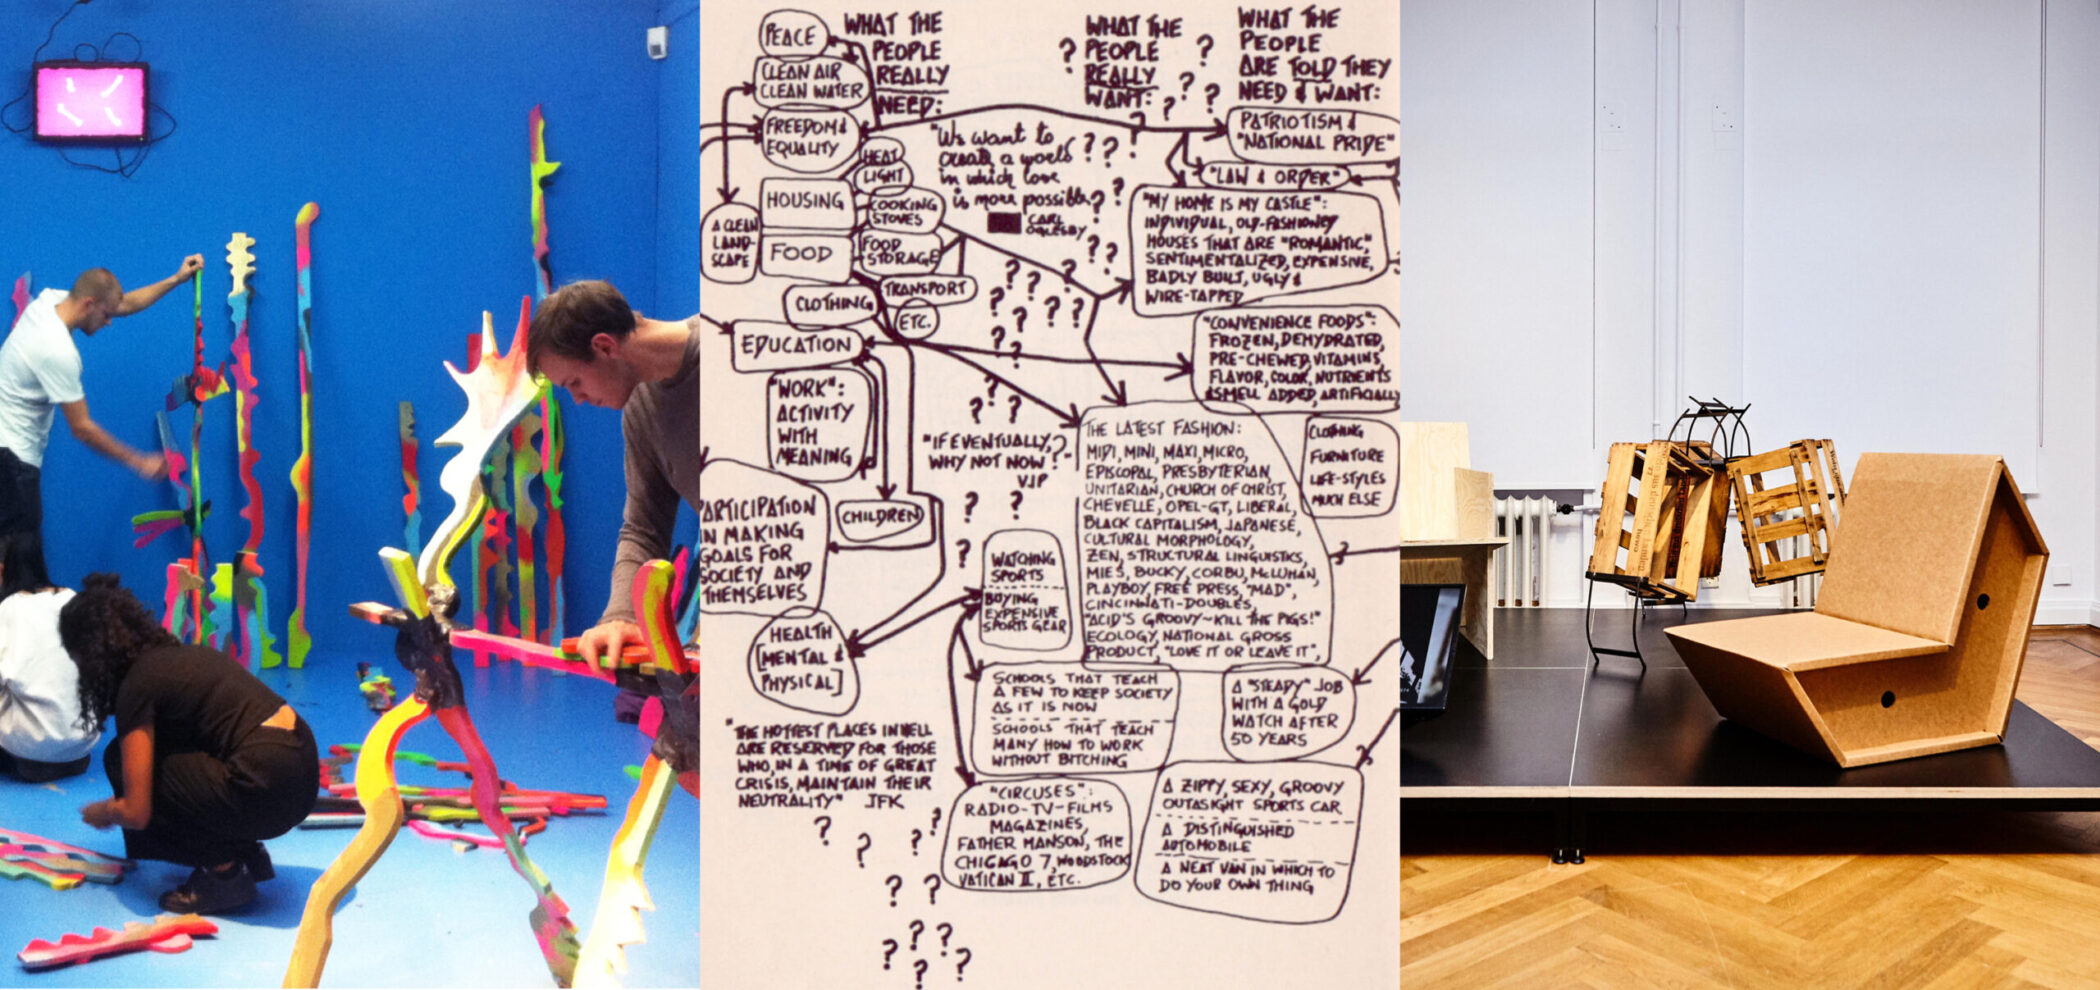 WHAT THE
PEOPLE
REALLY
NEED:
PEACE
CLEAN AIR
CLEAN WATER
FREEDOM &
EQUALITY
HEAT
LIGHT
HOUSING
COOKING
STOVES
A CLEAN
LAND-
SCAPE
FOOD
FOOD
STORAGE
TRANSPORT
CLOTHING
ETC.
EDUCATION
"WORK":
ACTIVITY
WITH
MEANING
PARTICIPATION
IN MAKING
GOALS FOR
SOCIETY AND
THEMSELVES
CHILDREN
HEALTH
[MENTAL &
PHYSICAL]
"THE HOTTEST PLACES IN HELL
ARE RESERVED FOR THOSE
WHO, IN A TIME OF GREAT
CRISIS, MAINTAIN THEIR
NEUTRALITY" JFK
WHAT THE
? PEOPLE ?
REALLY
WANT:
"We want to
create a world
in which love
is more possible
CARL
OGLESBY
"IF EVENTUALLY,
WHY NOT NOW?"
VIP
WATCHING
SPORTS
BUYING
EXPENSIVE
SPORTS GEAR
SCHOOLS THAT TEACH
A FEW TO KEEP SOCIETY
AS IT IS NOW
SCHOOLS THAT TEACH
MANY HOW TO WORK
WITHOUT BITCHING
"CIRCUSES":
RADIO-TV-FILMS
MAGAZINES,
FATHER MANSON, THE
CHICAGO 7, WOODSTOCK
VATICAN II, ETC.
WHAT THE
PEOPLE
ARE TOLD THEY
NEED & WANT:
PATRIOTISM &
"NATIONAL PRIDE"
"LAW & ORDER"
"MY HOME IS MY CASTLE":
INDIVIDUAL, OLD-FASHIONEY
HOUSES THAT ARE "ROMANTIC",
SENTIMENTALIZED, EXPENSIVE,
BADLY BUILT, UGLY &
WIRE-TAPPED
"CONVENIENCE FOODS":
FROZEN, DEHYDRATED,
PRE-CHEWED, VITAMINS,
FLAVOR, COLOR, NUTRIENTS
& SMELL ADDED, ARTIFICIALLY
THE LATEST FASHION:
MIDI, MINI, MAXI, MICRO,
EPISCOPAL, PRESBYTERIAN,
UNITARIAN, CHURCH OF CHRIST,
CHEVELLE, OPEL-GT, LIBERAL,
BLACK CAPITALISM, JAPANESE,
CULTURAL MORPHOLOGY,
ZEN, STRUCTURAL LINGUISTICS,
MIES, BUCKY, CORBU, McLUHAN,
PLAYBOY, FREE PRESS, "MAD",
CINCINNATI-DOUBLES,
"ACID'S GROOVY~KILL THE PIGS!"
ECOLOGY, NATIONAL GROSS
PRODUCT, "LOVE IT OR LEAVE IT",
CLOTHING
FURNITURE
LIFE-STYLES
MUCH ELSE
A "STEADY" JOB
WITH A GOLD
WATCH AFTER
50 YEARS
A ZIPPY, SEXY, GROOVY
OUTASIGHT SPORTS CAR
A DISTINGUISHED
AUTOMOBILE
A NEAT VAN IN WHICH TO
DO YOUR OWN THING